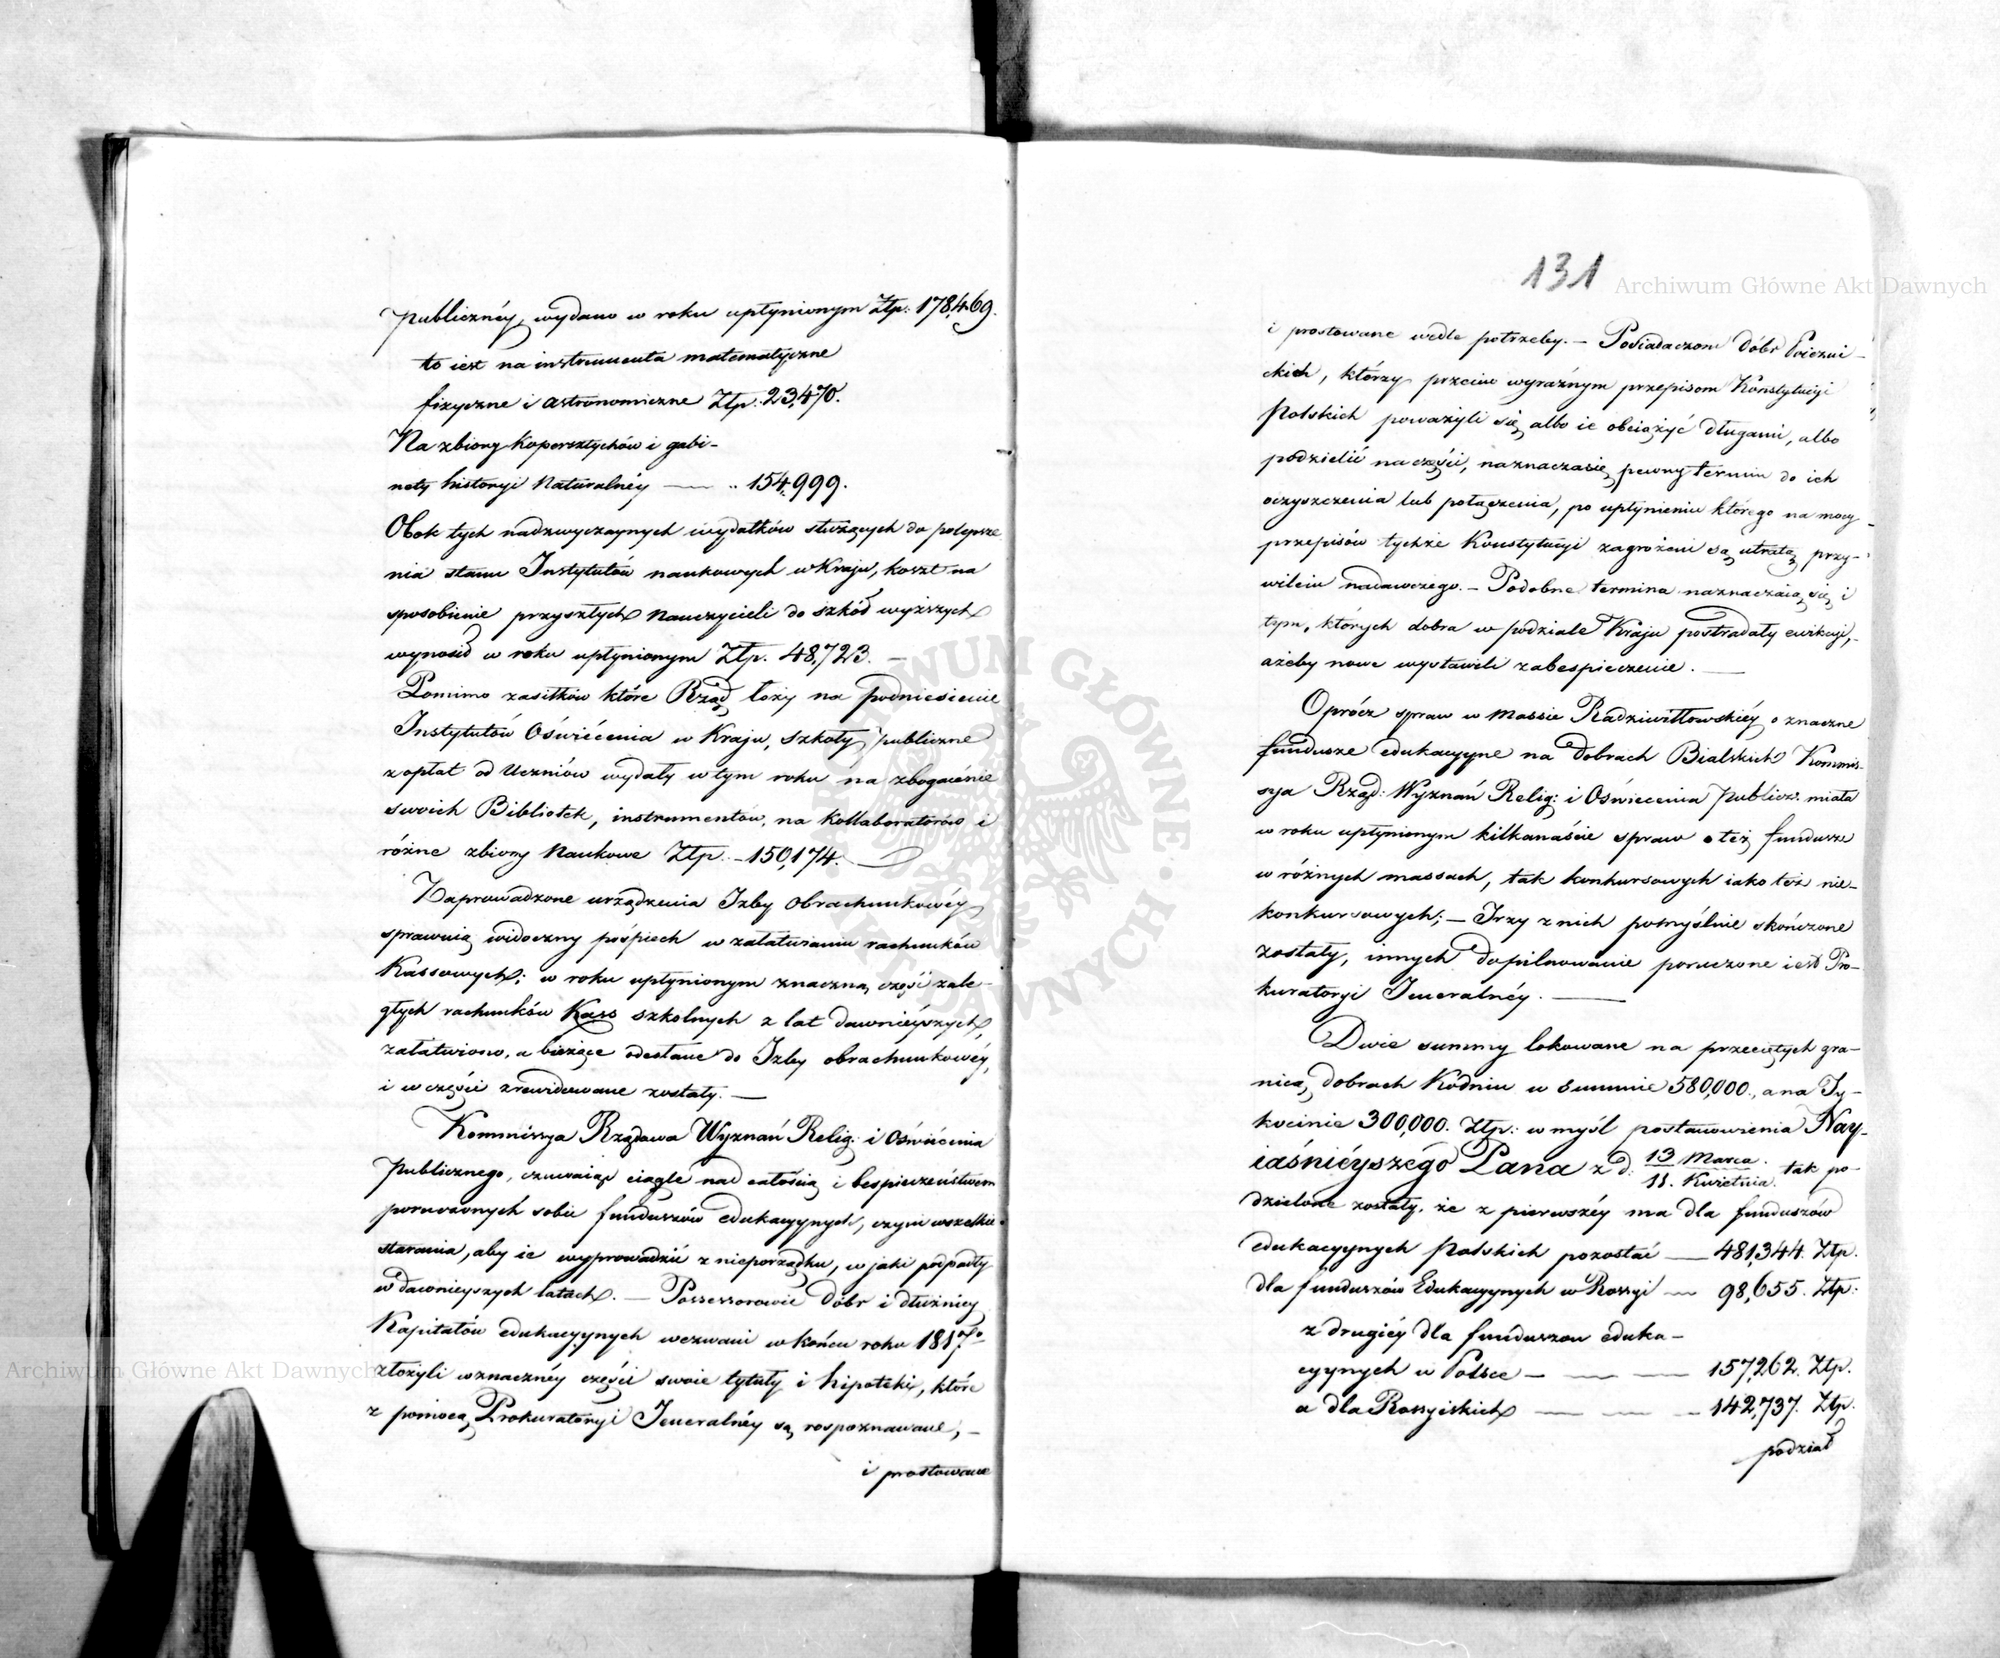 publicznéy, wydano w roku upłynionym Złp: 178,469.
to iest na instrumenta matematyczne
fizyczne i astronomiczne Złp: 23,470.
Na zbiory Kopersztychów i gabi-
nety historyi Naturalnéy — „ 154,999.
Obok tych nadzwyczaynych wydatków służących do polepsze
nia stanu Instytutów naukowych w Kraju, koszt na
sposobienie przyszłych Nauczycieli do szkół wyższych
wynosił w roku upłynionym Złp. 48,723. —
Pomimo zasiłków które Rząd łoży na podniesienie
Instytutów Oświécenia w Kraju, szkoły publiczne
z opłat od Uczniów wydały w tym roku na zbogacénie
swoich Bibliotek, instrumentów, na Kollaboratorów i
różne zbiory Naukowe Złp. - 150,174. —
Zaprowadzone urządzenia Izby Obrachunkowéy
sprawuią widoczny pośpiech w załatwianiu rachunków
Kassowych; w roku upłynionym znaczną część zale-
głych rachunków Kass szkolnych z lat dawnieyszych,
załatwiono, a bieżące odesłane do Izby obrachunkowéy,
i w części zrewidowane zostały. —
Kommissya Rządowa Wyznań Relig: i Oświécenia
Publicznego, czuwaiąc ciągle nad całością i bespieczeństwem
poruczonych sobie funduszów edukacyynych, czyni wszelkie
starania, aby ie wyprowadzić z nieporządku, w jaki popadły
w dawnieyszych latach. — Possessorowie Dóbr i dłużnicy
Kapitałów edukacyynych wezwani w końcu roku 1817go
złożyli w znacznéy części swoie tytuły i hipoteki, które
z pomocą Prokuratoryi Jeneralnéy są rospoznawane, —
i prostowane
131
i prostowane wedle potrzeby. — Posiadaczom Dóbr Poiezui-
ckich, którzy przeciw wyraźnym przepisom Konstytucyi
Polskich poważyli się albo ie obciążyć długami, albo
podzielić na części, naznacza się pewny termin do ich
oczyszczenia lub połączenia, po upłynieniu którego na mocy
przepisów tychże Konstytucyi zagrożeni są utratą przy-
wileiu nadawczego. — Podobne termina naznaczaią się i
tym, których dobra w podziale Kraju postradały ewikcyi,
ażeby nowe wystawili zabespieczenie. —
Oprócz spraw w Massie Radziwiłłowskiéy o znaczne
fundusze edukacyyne na Dobrach Bialskich Kommis-
sya Rząd: Wyznań Relig: i Oświecenia Publicz: miała
w roku upłynionym kilkanaście spraw o też fundusze
w różnych massach, tak konkursowych iako też nie-
konkursowych; — Trzy z nich pomyślnie skończone
zostały, innych dopilnowanie poruczone iest Pro-
kuratoryi Jeneralnéy. —
Dwie summy lokowane na przeciętych gra-
nicą dobrach Kodniu w summie 580,000., a na Ty-
kocinie 300,000. Złp: w myśl postanowienia Nay-
iaśniéyszégo Pana z d: 13 Marca / 11. Kwietnia. tak po-
dzielone zostały, że z pierwszéy ma dla funduszów
edukacyynych Polskich pozostać — 481,344. Złp.
dla funduszów Edukacyynych w Rossyi — 98,655. Złp:
z drugiéy dla funduszów eduka-
cyynych w Polsce — — — 157,262. Złp.
a dla Rossyiskich — — — 142,737. Złp.
podział
Archiwum Główne Akt Dawnych
Archiwum Główne Akt Dawnych
ARCHIWUM GŁÓWNE AKT DAWNYCH